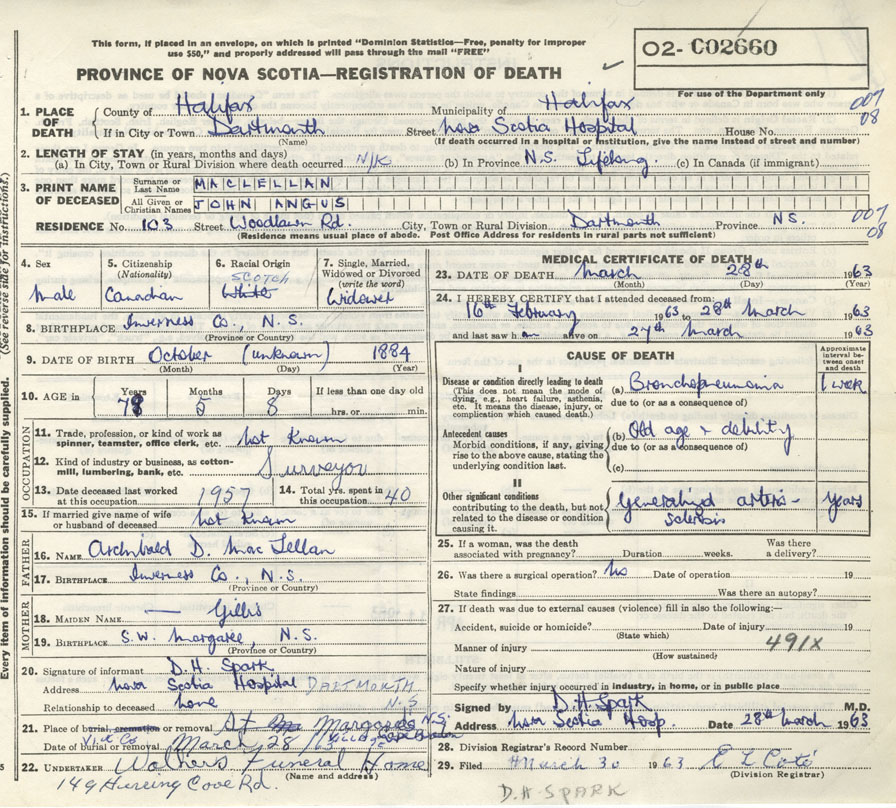 This form, if placed in an envelope, on which is printed "Dominion Statistics—Free, penalty for improper
use $50," and properly addressed will pass through the mail "FREE"
02- C02660
For use of the Department only
PROVINCE OF NOVA SCOTIA—REGISTRATION OF DEATH
007
08
1. PLACE OF DEATH
County of Halifax Municipality of Halifax
If in City or Town Dartmouth Street Nova Scotia Hospital House No.
(Name) (If death occurred in a hospital or institution, give the name instead of street and number)
2. LENGTH OF STAY (in years, months and days)
(a) In City, Town or Rural Division where death occurred N/K (b) In Province N.S. Lifelong. (c) In Canada (if immigrant)
3. PRINT NAME OF DECEASED
Surname or Last Name MACLELLAN
All Given or Christian Names JOHN ANGUS
RESIDENCE No. 103 Street Woodlawn Rd. City, Town or Rural Division Dartmouth Province N.S.
(Residence means usual place of abode. Post Office Address for residents in rural parts not sufficient)
007
08
(See reverse side for instructions.)
Every item of information should be carefully supplied.
4. Sex
Male
5. Citizenship
(Nationality)
Canadian
6. Racial Origin
SCOTCH
White
7. Single, Married, Widowed or Divorced
(write the word)
Widower
8. BIRTHPLACE Inverness Co., N.S.
(Province or Country)
9. DATE OF BIRTH October (unknown) 1884
(Month) (Day) (Year)
10. AGE in
Years Months Days If less than one day old
78 5 8 hrs. or min.
OCCUPATION
11. Trade, profession, or kind of work as spinner, teamster, office clerk, etc. Not Known
12. Kind of industry or business, as cotton-mill, lumbering, bank, etc. Surveyor
13. Date deceased last worked at this occupation 1957
14. Total yrs. spent in this occupation 40
15. If married give name of wife or husband of deceased Not Known
FATHER
16. NAME Archibald D. MacLellan
17. BIRTHPLACE Inverness Co., N.S.
(Province or Country)
MOTHER
18. MAIDEN NAME — Gillis
19. BIRTHPLACE S.W. Margaree, N.S.
(Province or Country)
20. Signature of informant D.H. Spark
Address Nova Scotia Hospital DARTMOUTH
N.S.
Relationship to deceased None
21. Place of burial, cremation or removal Margaree N.S.
Date of burial or removal March 28/63
22. UNDERTAKER Walkers Funeral Home
(Name and address)
149 Herring Cove Rd.
MEDICAL CERTIFICATE OF DEATH
23. DATE OF DEATH March 28th 1963
(Month) (Day) (Year)
24. I HEREBY CERTIFY that I attended deceased from:
16th February 1963 to 28th March 1963
and last saw him alive on 27th March 1963
CAUSE OF DEATH
Approximate interval between onset and death
I
Disease or condition directly leading to death
(This does not mean the mode of dying, e.g., heart failure, asthenia, etc. It means the disease, injury, or complication which caused death.)
(a) Bronchopneumonia 1 week
due to (or as a consequence of)
Antecedent causes
Morbid conditions, if any, giving rise to the above cause, stating the underlying condition last.
(b) Old age & debility
due to (or as a consequence of)
(c)
II
Other significant conditions
contributing to the death, but not related to the disease or condition causing it.
Generalized arterio-
sclerosis
years
25. If a woman, was the death associated with pregnancy? Duration weeks. Was there a delivery?
26. Was there a surgical operation? No Date of operation 19
State findings Was there an autopsy?
27. If death was due to external causes (violence) fill in also the following:—
Accident, suicide or homicide? Date of injury 19
(State which)
Manner of injury 491X
(How sustained)
Nature of injury
Specify whether injury occurred in industry, in home, or in public place
Signed by D.H. Spark M.D.
Address Nova Scotia Hosp. Date 28th March 1963
28. Division Registrar's Record Number
29. Filed March 30 1963 E L Coté
(Division Registrar)
D.H. SPARK